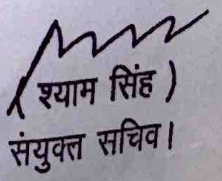 ( श्याम सिंह )
संयुक्त सचिव।